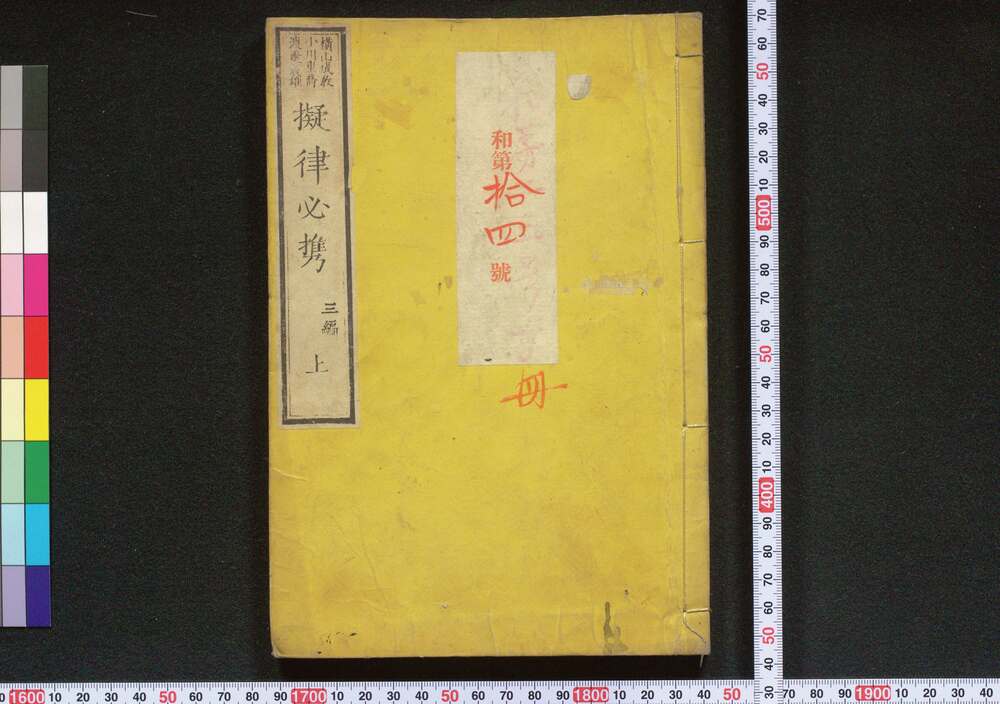 和第
拾四
號
冊
小川
擬律必携
三編
上
10 20 30 40 50 60 70 80 90
1600 10 20 30 40 50 60 70 80 90 1700 10 20 30 40 50 60 70 80 90 1800 10 20 30 40 50
70 80 90 1900 10 20 30 40
70 60 50 40 30 20 10 500 90 80 70 60 50 40 30 20 10 400 90 80 70 60 50 40 30